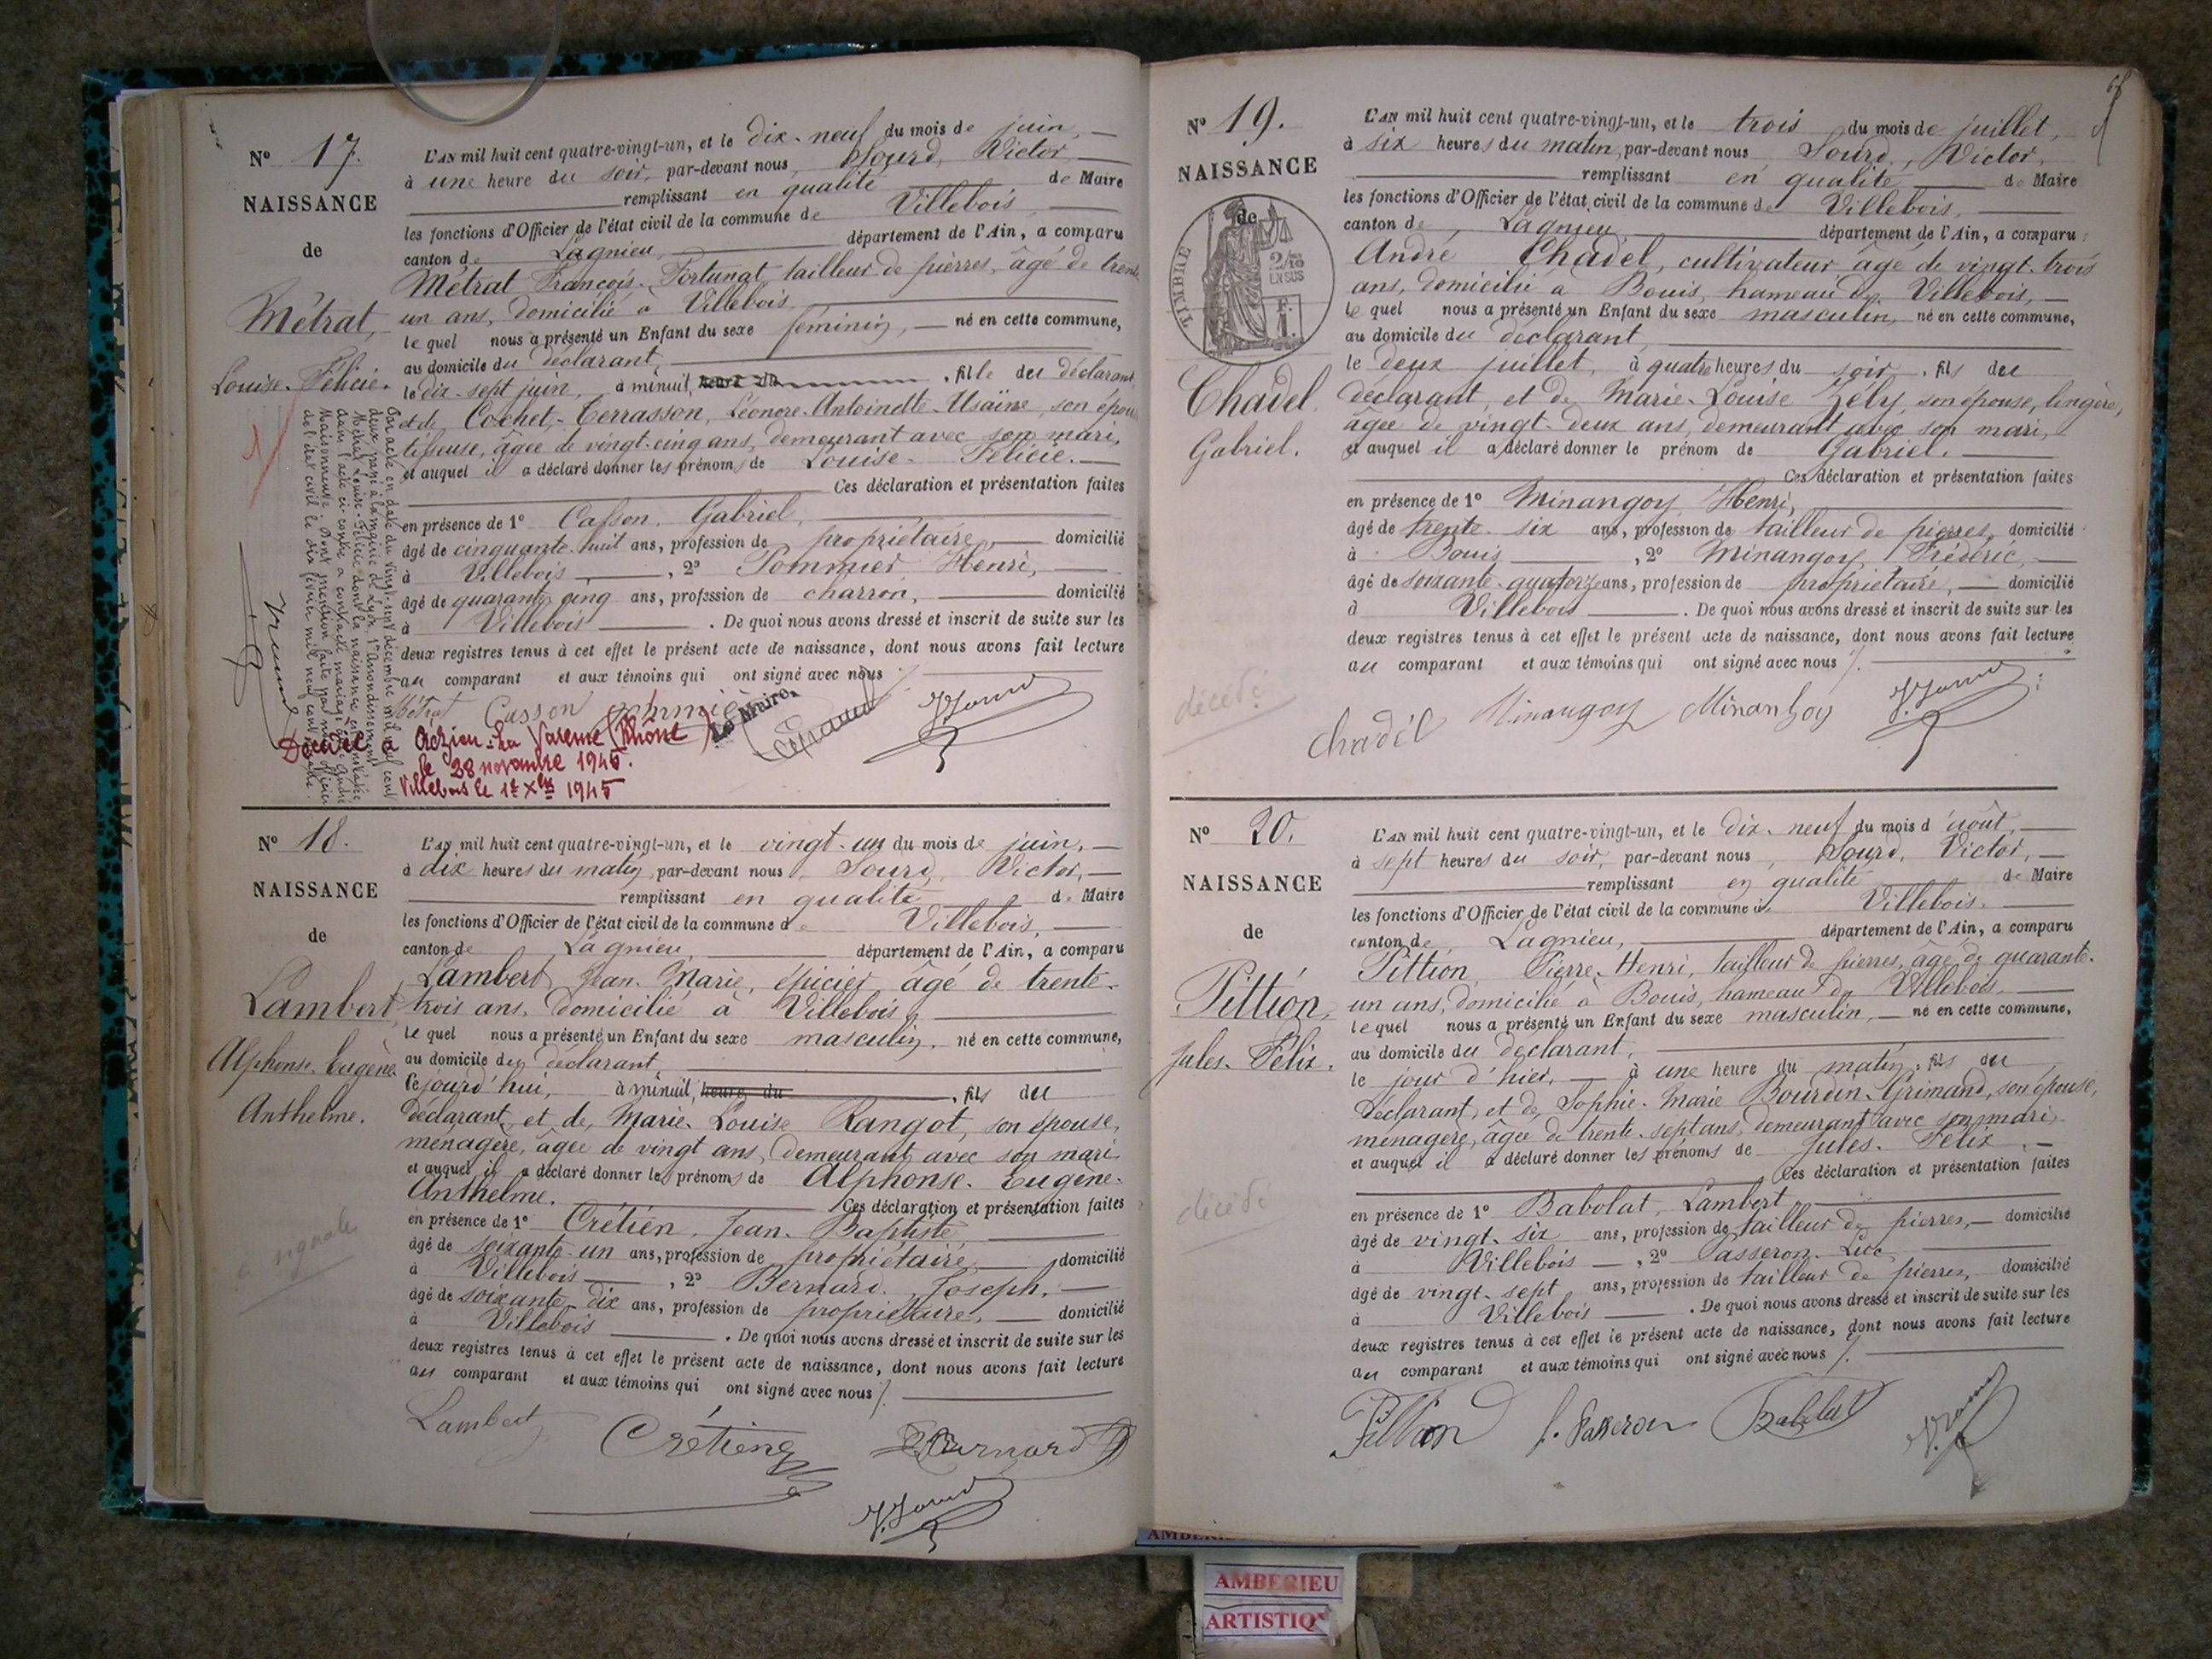 Nº 17.
NAISSANCE
de
Métrat,
Louise-Félicie.
L'AN mil huit cent quatre-vingt-un, et le dix-neuf du mois de juin,
à une heure du soir, par-devant nous, Sourd, Victor,
remplissant en qualité de Maire
les fonctions d'Officier de l'état civil de la commune de Villebois,
canton de Lagnieu, département de l'Ain, a comparu
Métrat François-Fortunat, tailleur de pierres, âgé de trente
un ans, domicilié à Villebois,
lequel nous a présenté un Enfant du sexe féminin, né en cette commune,
au domicile du déclarant,
le dix-sept juin, à minuit, heure du, fille du déclarant
et de Cochet-Terrasson, Léonore-Antoinette-Usaïne, son épouse
tisseuse, âgée de vingt-cinq ans, demeurant avec son mari,
et auquel il a déclaré donner les prénoms de Louise-Félicie.
Ces déclaration et présentation faites
en présence de 1º Casson, Gabriel,
âgé de cinquante-huit ans, profession de propriétaire, domicilié
à Villebois, 2º Pommier, Henri,
âgé de quarante cinq ans, profession de charron, domicilié
à Villebois. De quoi nous avons dressé et inscrit de suite sur les
deux registres tenus à cet effet le présent acte de naissance, dont nous avons fait lecture
au comparant et aux témoins qui ont signé avec nous
Métrat Casson Pommier V. Sourd
Le Maire,
Décédée à Rézieu-La Varenne (Rhône)
le 28 novembre 1945.
Villebois le 1er Xbre 1945
Par acte en date du vingt-sept décembre mil neuf cent
deux passé à la mairie de Lyon, 1er Arrondissement
Métrat Louise-Félicie dont la naissance est constatée
dans l'acte ci-contre a contracté mariage avec André
Maisonneuve. Dont mention faite par nous officier
de l'état civil le dix février mil neuf cent trois.
Nº 18.
NAISSANCE
de
Lambert,
Alphonse-Eugène-
Anthelme.
à signaler
L'AN mil huit cent quatre-vingt-un, et le vingt-un du mois de juin,
à dix heures du matin, par-devant nous, Sourd, Victor,
remplissant en qualité de Maire
les fonctions d'Officier de l'état civil de la commune de Villebois,
canton de Lagnieu, département de l'Ain, a comparu
Lambert, Jean-Marie, épicier, âgé de trente-
trois ans, domicilié à Villebois,
lequel nous a présenté un Enfant du sexe masculin, né en cette commune,
au domicile du déclarant
cejourd'hui, à minuit, heure du, fils du
déclarant, et de Marie-Louise Rangot, son épouse,
ménagère, âgée de vingt ans, demeurant avec son mari
et auquel il a déclaré donner les prénoms de Alphonse-Eugène-
Anthelme. Ces déclaration et présentation faites
en présence de 1º Crétien, Jean-Baptiste,
âgé de soixante-un ans, profession de propriétaire, domicilié
à Villebois, 2º Bernard, Joseph,
âgé de soixante-dix ans, profession de propriétaire, domicilié
à Villebois. De quoi nous avons dressé et inscrit de suite sur les
deux registres tenus à cet effet le présent acte de naissance, dont nous avons fait lecture
au comparant et aux témoins qui ont signé avec nous
Lambert Crétien Bernard
V. Sourd
Nº 19.
NAISSANCE
de
TIMBRE
2/10
EN SUS
Chadel
Gabriel.
décédé
L'AN mil huit cent quatre-vingt-un, et le trois du mois de juillet,
à six heures du matin, par-devant nous Sourd, Victor,
remplissant en qualité de Maire
les fonctions d'Officier de l'état civil de la commune de Villebois,
canton de, Lagnieu, département de l'Ain, a comparu
André Chadel, cultivateur âgé de vingt-trois
ans, domicilié à Bouis, hameau de Villebois,
lequel nous a présenté un Enfant du sexe masculin, né en cette commune,
au domicile du déclarant,
le deux juillet, à quatre heures du soir, fils du
déclarant, et de Marie-Louise Zély, son épouse, lingère,
âgée de vingt-deux ans, demeurant avec son mari,
et auquel il a déclaré donner le prénom de Gabriel.
Ces déclaration et présentation faites
en présence de 1º Minangoy Henri,
âgé de trente-six ans, profession de tailleur de pierres, domicilié
à Bouis, 2º Minangoy, Frédéric,
âgé de soixante-quatorze ans, profession de propriétaire, domicilié
à Villebois. De quoi nous avons dressé et inscrit de suite sur les
deux registres tenus à cet effet le présent acte de naissance, dont nous avons fait lecture
au comparant et aux témoins qui ont signé avec nous
Chadel Minangoy Minangoy V. Sourd
Nº 20.
NAISSANCE
de
Pittion,
Jules-Félix.
décédé
L'AN mil huit cent quatre-vingt-un, et le dix-neuf du mois d'août,
à sept heures du soir, par-devant nous, Sourd, Victor,
remplissant en qualité de Maire
les fonctions d'Officier de l'état civil de la commune de Villebois.
canton de, Lagnieu, département de l'Ain, a comparu
Pittion Pierre-Henri, tailleur de pierres, âgé de quarante-
un ans, domicilié à Bouis, hameau de Villebois,
lequel nous a présenté un Enfant du sexe masculin, né en cette commune,
au domicile du déclarant,
le jour d'hier, à une heure du matin, fils du
déclarant, et de Sophie-Marie Bourdin-Grimand, son épouse,
ménagère, âgée de trente-sept ans, demeurant avec son mari,
et auquel il a déclaré donner les prénoms de Jules-Félix.
Ces déclaration et présentation faites
en présence de 1º Babolat, Lambert,
âgé de vingt-six ans, profession de tailleur de pierres, domicilié
à Villebois, 2º Passeron, Luc,
âgé de vingt-sept ans, profession de tailleur de pierres, domicilié
à Villebois. De quoi nous avons dressé et inscrit de suite sur les
deux registres tenus à cet effet le présent acte de naissance, dont nous avons fait lecture
au comparant et aux témoins qui ont signé avec nous
Pittion L. Passeron Babolat V. Sourd
AMBERIEU
ARTISTIQ